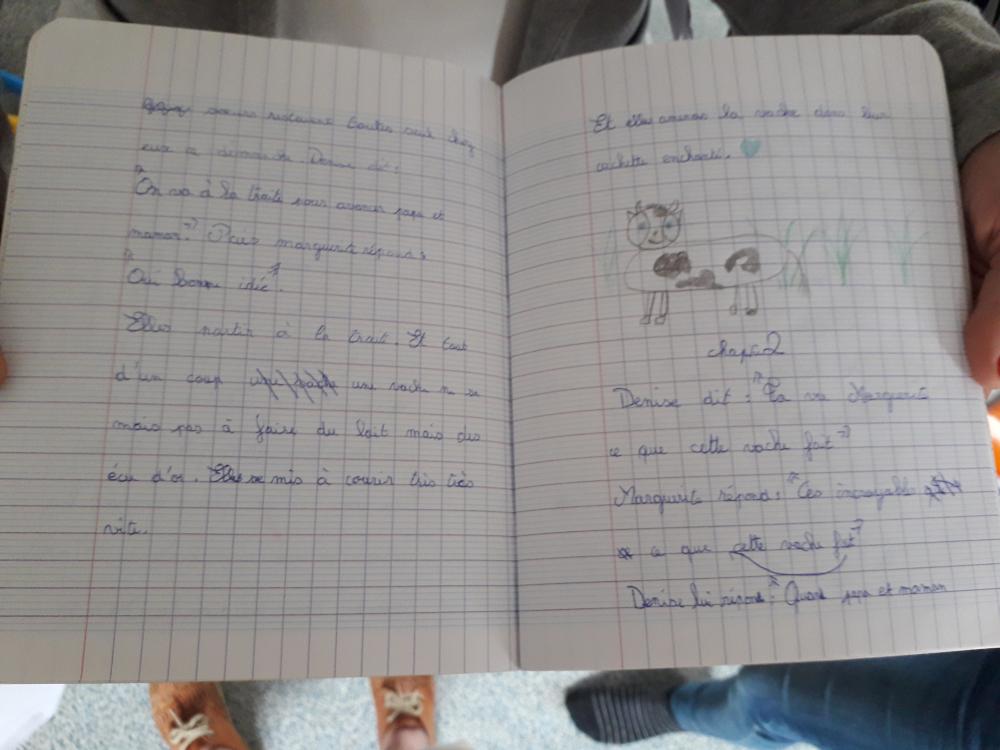 soeurs restaient toutes seul chez
eux a demande. Denise dit :
"On va à la traite pour avancer papa et
maman?" Puis marguerite répond :
"Oui bonne idié".
Elles partir à la trait. Et tout
d'un coup une vache n se
mais pas à faire du lait mais des
écu d'or. Elles se mis à courir très très
vite.
Et elles amenas la vache dans leur
cachette enchanté.
chapi 2
Denise dit : "Ta vu Marguerite
ce que cette vache fait"
Marguerite répond : "Ces incroyable
ce que cette vache fait"
Denise lui répond : "Quand papa et maman